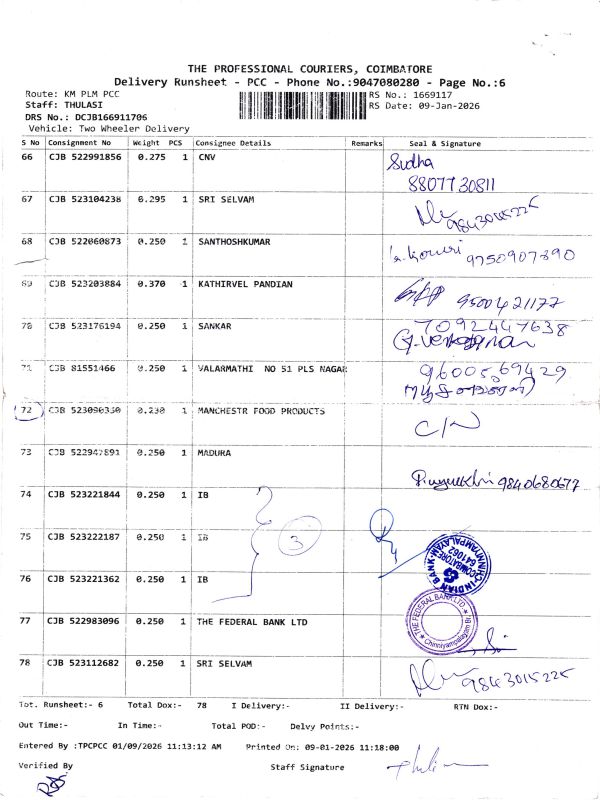 THE PROFESSIONAL COURIERS, COIMBATORE
Delivery Runsheet - PCC - Phone No.:9047080280 - Page No.:6
Route: KM PLM PCC
RS No.: 1669117
Staff: THULASI
RS Date: 09-Jan-2026
DRS No.: DCJB166911706
Vehicle: Two Wheeler Delivery
S No Consignment No Weight PCS Consignee Details Remarks Seal & Signature
66 CJB 522991856 0.275 1 CNV Sudha
8807730811
67 CJB 523104238 0.295 1 SRI SELVAM 9843015225
68 CJB 522060873 0.250 1 SANTHOSHKUMAR 9750907390
69 CJB 523203884 0.370 1 KATHIRVEL PANDIAN 9500421177
70 CJB 523176194 0.250 1 SANKAR 7092447638
71 CJB 81551466 0.250 1 VALARMATHI NO 51 PLS NAGAR 9600569429
72 CJB 523090350 0.230 1 MANCHESTR FOOD PRODUCTS C/N
73 CJB 522947891 0.250 1 MADURA 9840680677
74 CJB 523221844 0.250 1 IB
75 CJB 523222187 0.250 1 IB 3
76 CJB 523221362 0.250 1 IB
INDIAN BANK CHINNIYAMPALAYAM COIMBATORE 641062
77 CJB 522983096 0.250 1 THE FEDERAL BANK LTD
THE FEDERAL BANK LTD Chinniyampalayam Br.
78 CJB 523112682 0.250 1 SRI SELVAM 9843015225
Tot. Runsheet:- 6 Total Dox:- 78 I Delivery:- II Delivery:- RTN Dox:-
Out Time:- In Time:- Total POD:- Delvy Points:-
Entered By :TPCPCC 01/09/2026 11:13:12 AM Printed On: 09-01-2026 11:18:00
Verified By Staff Signature